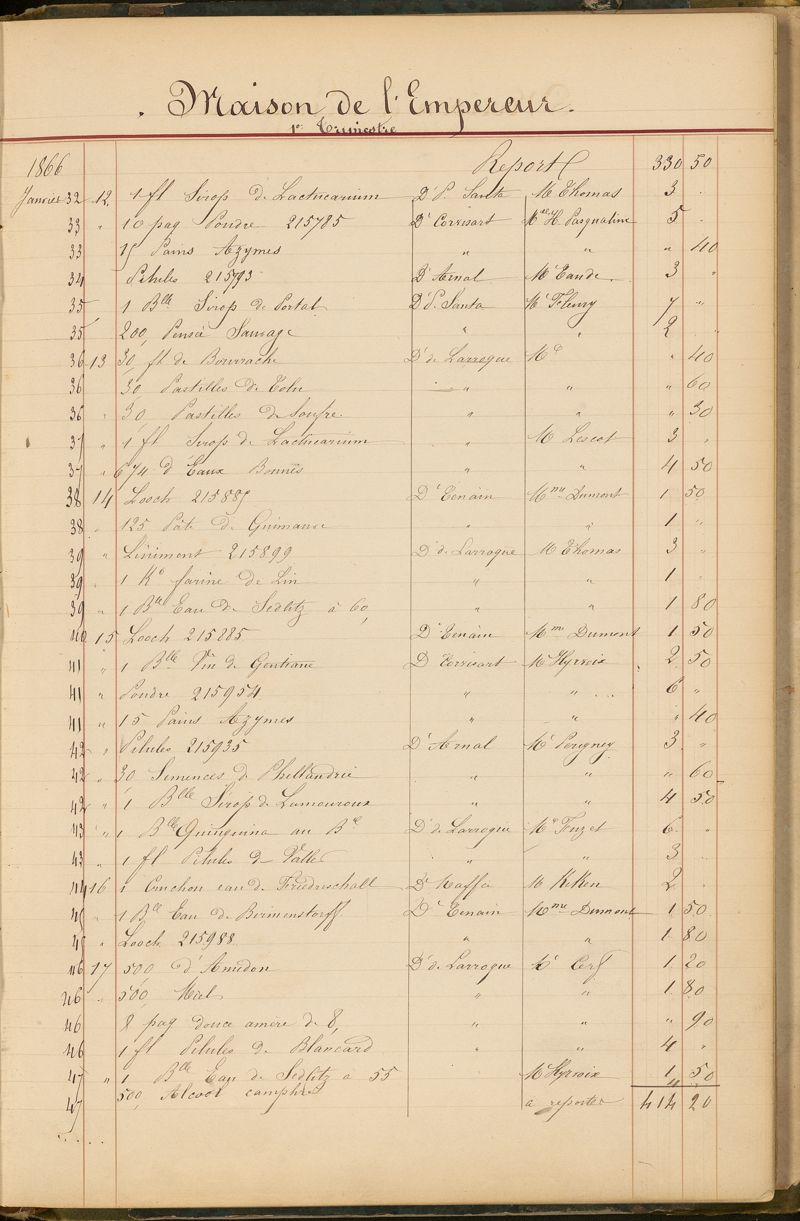 Maison de l'Empereur.
1er Trimestre
1866 Report 330 50
Janvier 32 12 1 fl Sirop de Lactucarium Dr P. Santa Mr Thomas 3 "
33 " 10 paq Poudre 215785 Dr Corvisart Mr H. Pasqualine 5 "
33 15 Pains Azymes " " " 40
34 Pilules 21593 Dr Arnal Mr Eande 3 "
35 1 Blle Sirop de Portal Dr P. Santa Mr Fleury 7 "
35 200, Pensée Sauvage " " 2 "
36 13 30, fl de Bourrache Dr de Larroque Mr " 40
36 30, Pastilles de Tolu " " " 60
36 " 30, Pastilles de Soufre " " " 30
37 " 1 fl Sirop de Lactucarium " Mr Lescot 3 "
37 " 6 7/4 d'Eaux Bonnes " " 4 50
38 14 Looch 215885 Dr Tenain Mme Dumont 1 50
38 " 125 Pâte de Guimauve " " 1 "
39 " Liniment 215899 Dr de Larroque Mr Thomas 3 "
39 " 1 Ko farine de Lin " " 1 "
39 " 1 Blle Eau de Sedlitz à 60, " " 1 80
40 15 Looch 215885 Dr Tenain Mme Dumont 1 50
41 " 1 Blle Vin de Gentiane Dr Corvisart Mr Hyrvoix 2 50
41 " Poudre 215954 " " 6 "
41 " 15 Pains Azymes " " " 40
42 " Pilules 215935 Dr Arnal Mr Perigney 3 "
42 " 30 Semences de Phellandrie " " " 60
42 " 1 Blle Sirop de Lamouroux " " 4 50
43 " 1 Blle Quinquina au Bx Dr de Larroque Mr Fuzet 6 "
43 " 1 fl Pilules de Vallet " " 3 "
44 16 1 Cruchon eau de Friedrischall Dr Maffei Mr Kiken 2 "
45 " 1 Blle Eau de Birmenstorff Dr Tenain Mme Dumont 1 50
45 " Looch 215988 " " 1 80
46 17 500, d'Amidon Dr de Larroque Mr Cerf 1 20
46 " 500, Miel " " 1 80
46 8 paq douce amère de 8, " " " 90
46 1 fl Pilules de Blancard " " 4 "
47 " 1 Blle Eau de Sedlitz à 55 Mr Hyrvoix 1 50
47 500, Alcool camphré " "
a reporter 414 20